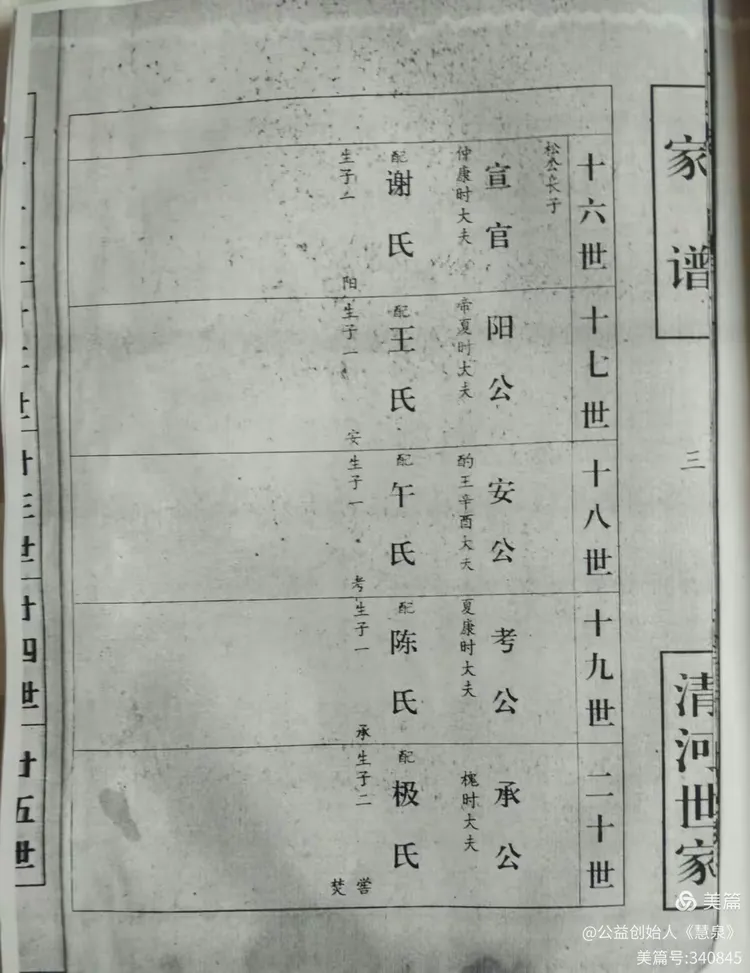 家谱
三
清河世家
十六世
松公长子
宣官
仲康时大夫
配
谢氏
生子二
阳
十七世
阳公
帝夏时大夫
配
王氏
生子一
安
十八世
安公
酌王辛酉大夫
配
午氏
生子一
考
十九世
考公
夏康时大夫
配
陈氏
生子一
承
二十世
承公
槐时大夫
配
极氏
生子二
喾
焚
廿三世
廿四世
廿五世
美篇
@公益创始人《慧泉》
美篇号:340845